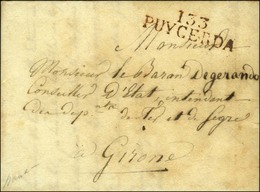 133
PUYCERDA
Monsieur
Monsieur le Baron Degerando
Conseiller d'Etat, intendant
des dep.ts du Ter et du Segre
à Girone